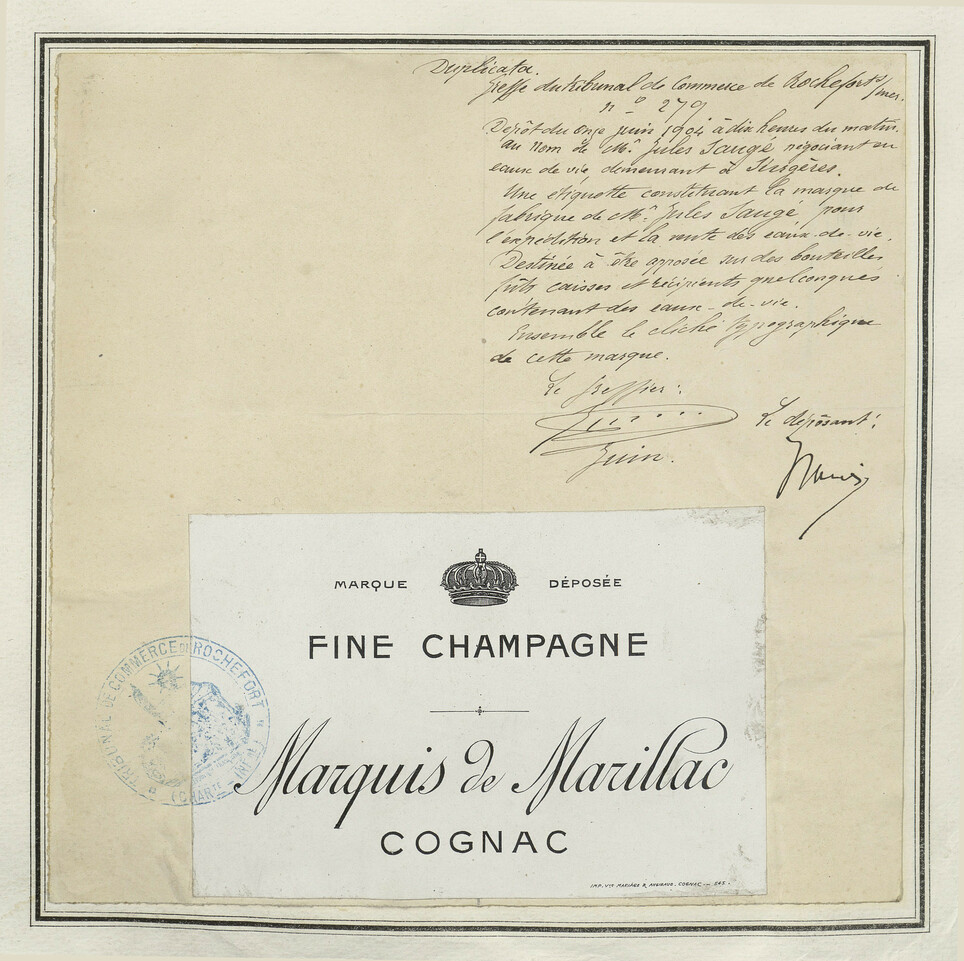 Duplicata.
Greffe du tribunal de Commerce de Rochefort s/mer.
n° 279
Dépôt du onze juin 1904 à dix heures du matin.
au nom de Mr. Jules Saugé négociant en
eaux de vie, demeurant à Surgères.
Une étiquette constituant la marque de
fabrique de Mr. Jules Saugé pour
l'expédition et la vente des eaux-de-vie.
Destinée à être apposée sur des bouteilles
fûts caisses et récipients quelconques
contenant des eaux-de-vie.
Ensemble le cliché typographique
de cette marque.
Le Greffier:
Le déposant:
MARQUE DÉPOSÉE
FINE CHAMPAGNE
TRIBUNAL DE COMMERCE DE ROCHEFORT
(CHARTE INFRE)
Marquis de Marillac
COGNAC
IMP. VVE MARIAGE & ANGIBAUD, COGNAC